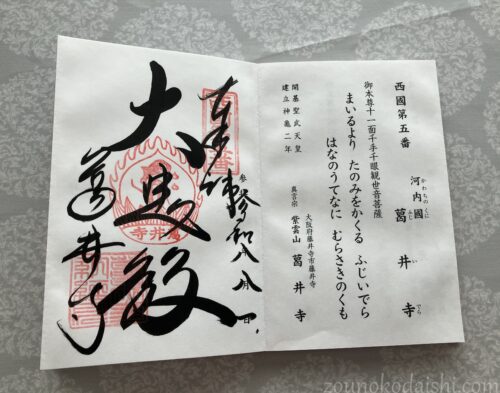 西國第五番
かわちのくに ふじ い でら
河内國 葛井寺
御本尊十一面千手千眼観世音菩薩
まいるより たのみをかくる ふじいでら
はなのうてなに むらさきのくも
開基聖武天皇
建立神亀二年
大阪府藤井寺市藤井寺
真言宗 紫雲山 葛井寺
奉拝
大悲殿
葛井寺
zounokodaishi.com